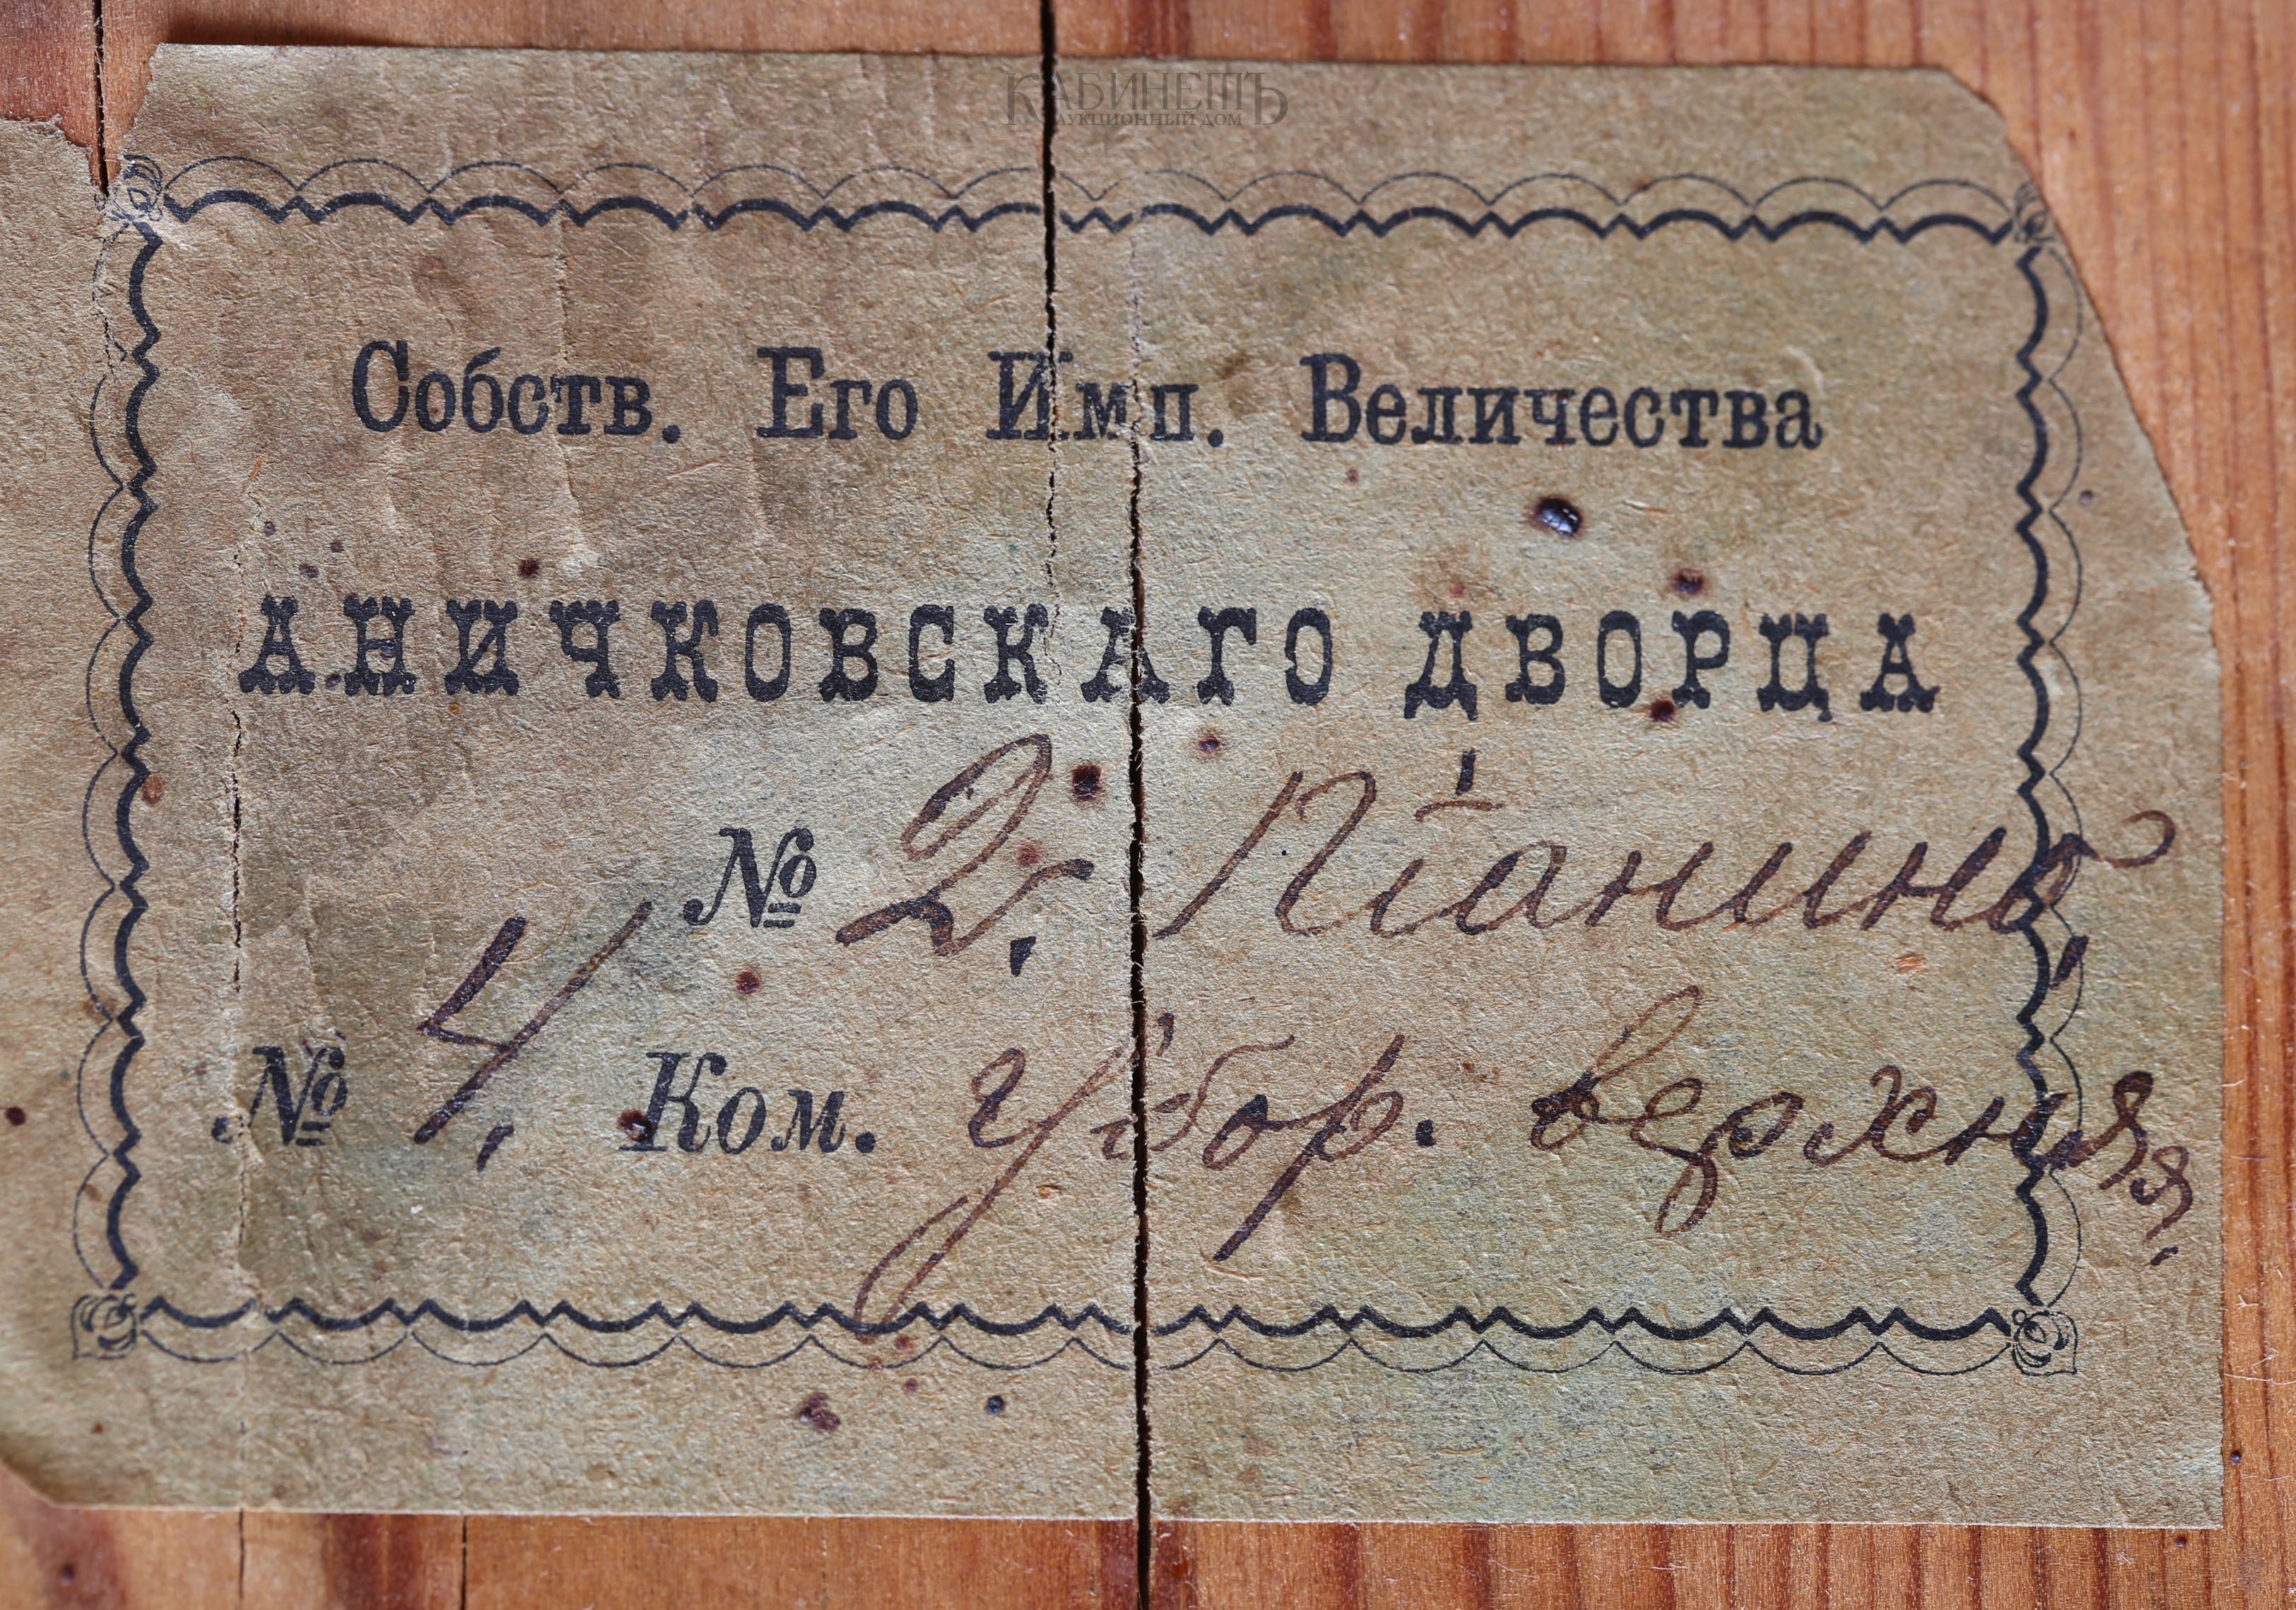 КАБИНЕТЪ
АУКЦИОННЫЙ ДОМ
Собств. Его Имп. Величества
АНИЧКОВСКАГО ДВОРЦА
№ 2. Піанино,
№ 4, Ком. убор. верхняя.